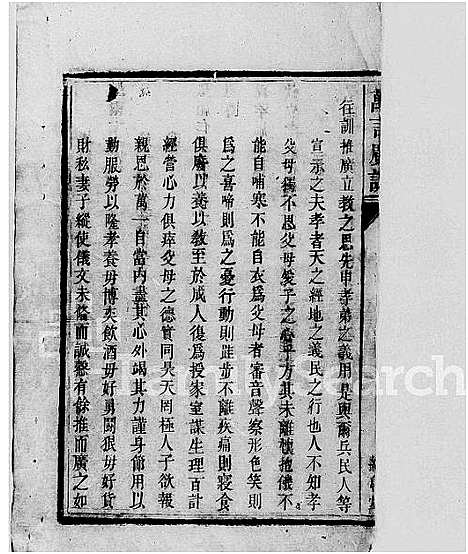 往訓推廣立教之思先申孝弟之義用是與爾兵民人等
宣示之夫孝者天之經地之義民之行也人不知孝
父母獨不思父母愛子之心乎方其未離懷抱饑不
能自哺寒不能自衣為父母者審音聲察形色笑則
為之喜啼則為之憂行動則跬步不離疾痛則寢食
俱廢以養以教至於成人復為授家室謀生理百計
經營心力俱瘁父母之德實同昊天罔極人子欲報
親恩於萬一自當內盡其心外竭其力謹身節用以
勤服勞以隆孝養毋博奕飲酒毋好勇鬬狠毋好貨
財私妻子縱使儀文未备而誠慤有餘推而廣之如
FamilySearch